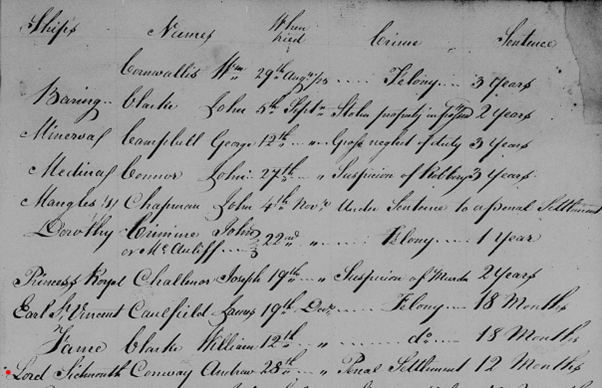 Ships Names When tried Crime Sentence
Cornwallis Wm 29th Augt /25 Felony 3 Years
Baring Clarke John 5th Septr Stolen property in 2 Years
Minerva Campbell George 12th " Gross neglect of duty 3 Years
Medina Connor John 27th " Suspicion of Robbery 3 Years
Mangles Chapman John 4th Novr Under Sentence to a penal Settlement
Dorothy John 22nd " Felony 1 Year
or McAuliff
Princess Royal Challnor Joseph 19th " Suspicion of Murder 2 Years
Earl St. Vincent Caulfield James 19th Decr Felony 18 Months
Fame Clarke William 12th " do 18 Months
Lord Sidmouth Conway Andrew 28th " Penal Settlement 12 Months